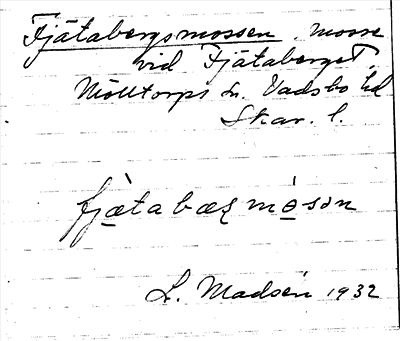 Fjätabergsmossen, mosse
vid Fjätaberget,
Mölltorps sn. Vadsbo hd
Skar. l.
fjætabæꝛmòsən
L. Madsén 1932